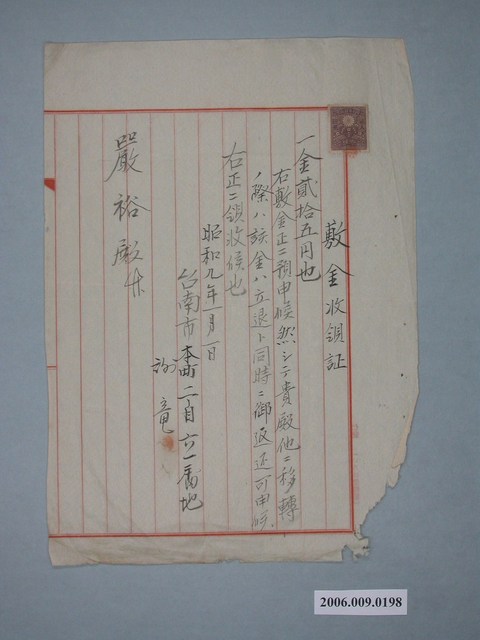 敷金收領証
一金貳拾五円也
右敷金正ニ預申候然シテ貴殿他ニ移轉
ノ際ハ該金ハ立退ト同時ニ御返还可申候
右正ニ領收候也
昭和九年一月一日
台南市本町二ノ目六一番地
謝竜
嚴裕殿
2006.009.0198